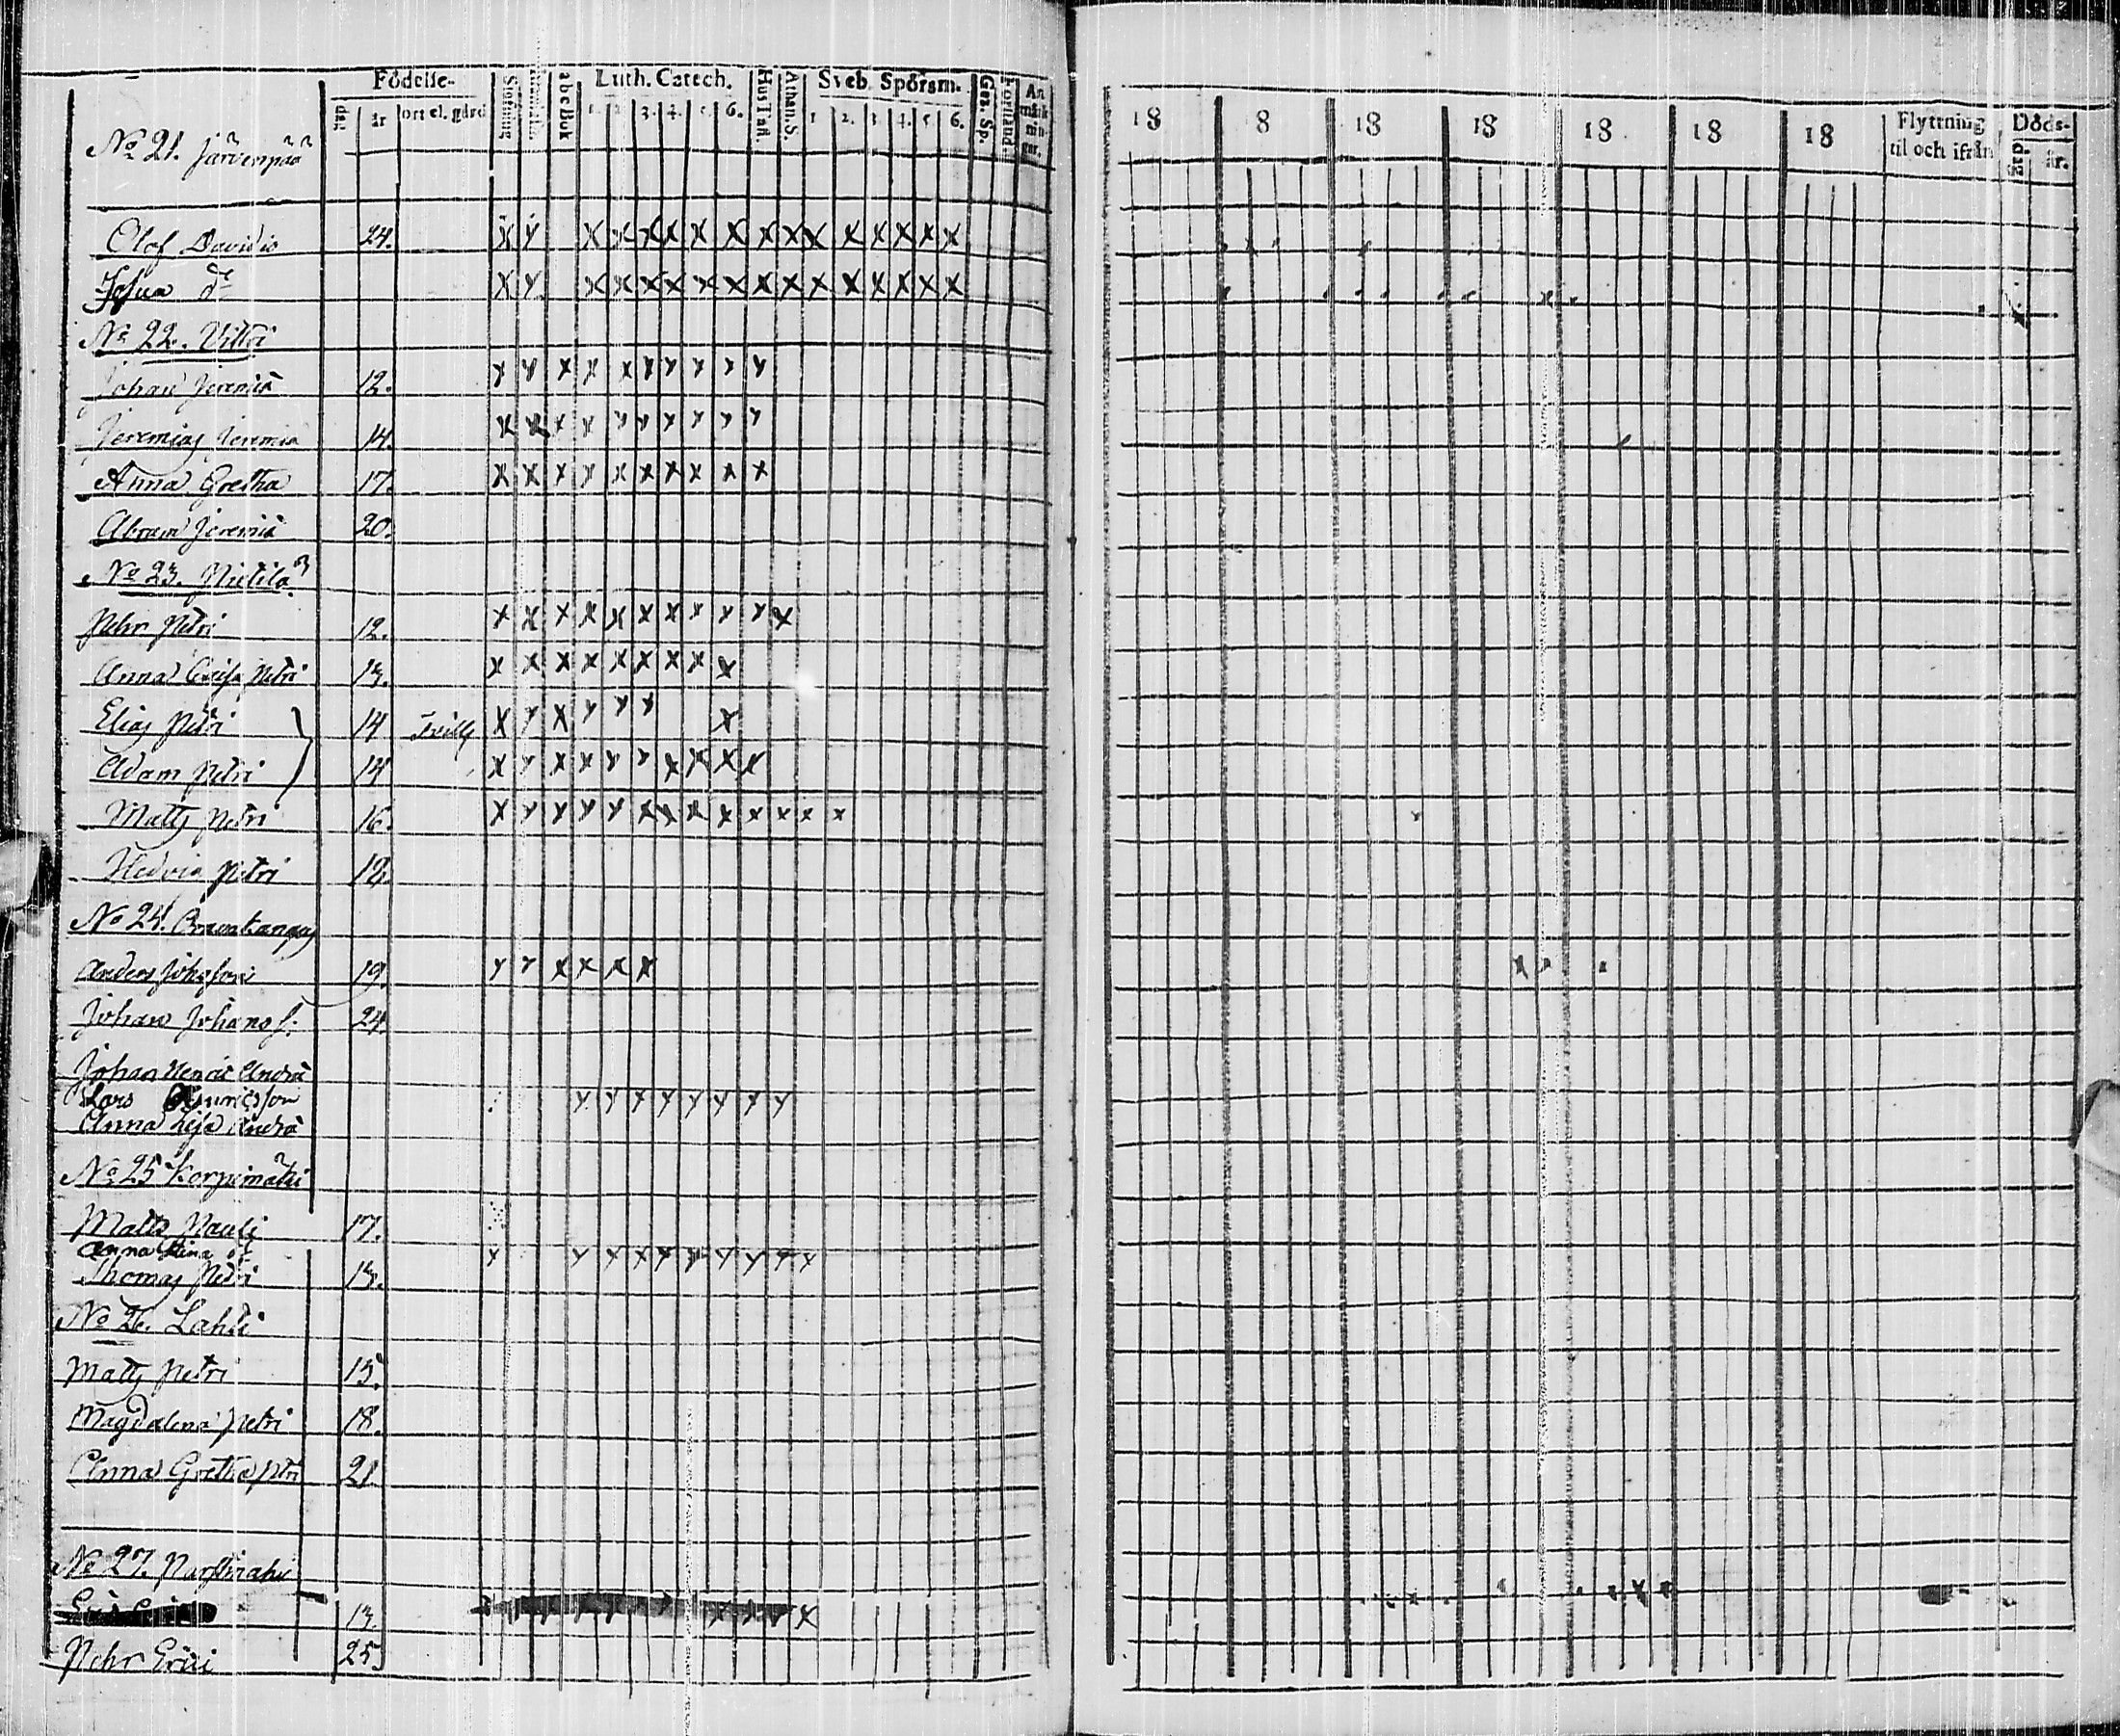 Födelse-
dag
år
ort el. gård
abcBok
Luth. Catech.
1. 2. 3. 4. 5. 6.
Hus Tafl.
Athan. S.
Sveb. Spörsm.
1 2. 3 4. 5 6.
Gez. Sp.
Förstånd
An märk nin gar.
18 8 18 18 18 18 18
Flyttning til och ifrån
Döds-
dag
år.
No 21. Järvenpää
Olof Davidis 24.
Josua do
No 22. Vitki
Johan Jeremiæ 12.
Jeremias Jeremiæ 14.
Anna Gretha 17.
Abram Jeremiæ 20.
No 23. Pietilä
Pehr Petri 12.
Anna Caisa Petri 13.
Elias Petri 14 Tvill
Adam Petri 14
Matts Petri 16.
Hedvig Petri
No 24.
Anders Johansson 19.
Johan Johans s. 24.
Johan Henric Andræ
Lars Henricsson
Anna Lisa Andræ
No 25 Korpimäki
Matts Pauli 17.
Anna Stina do
Thomas Petri 13.
No 26. Lahti
Matts Petri 15.
Magdalena Petri 18.
Anna Gretha Petri 21.
No 27.
13.
Pehr Erici 25.